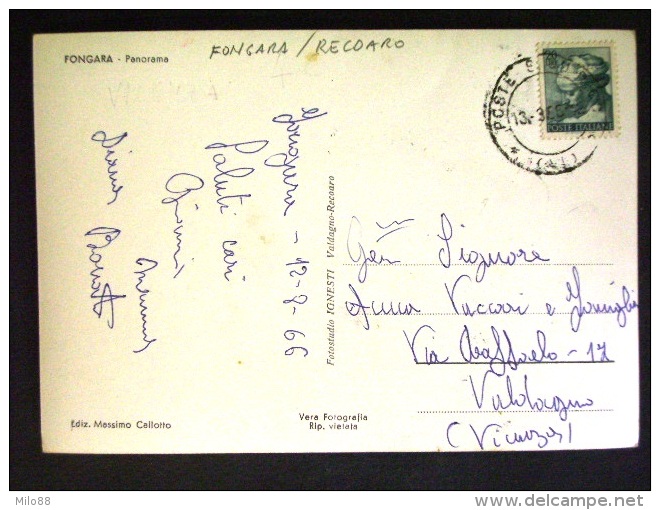 FONGARA - Panorama
FONGARA / RECOARO
POSTE
13-3
POSTE ITALIANE
Fongara - 12-8-66
Saluti cari
Gianni
Fotostudio IGNESTI Valdagno-Recoaro
Gen Signore
Anna Vaccari e Famiglia
Via Raffaelo - 17
Valdagno
(Vicenza)
Ediz. Massimo Callotto
Vera Fotografia
Rip. vietata
Milo88
delcampe.net